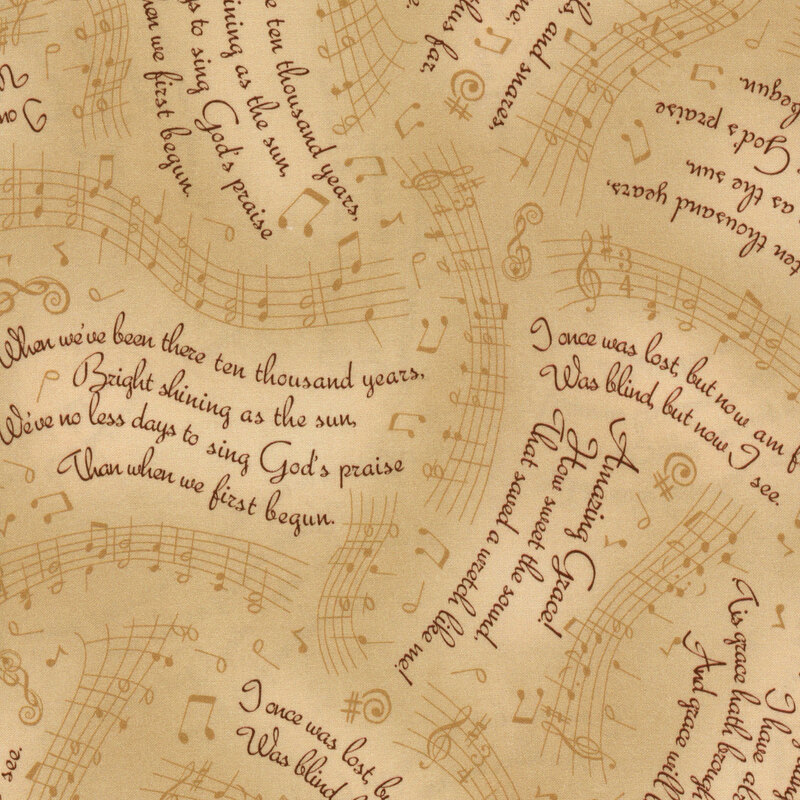 ten thousand years,
ining as the sun,
to sing God's praise
we first begun.
and snares,
thus far,
begun.
God's praise
as the sun,
ten thousand years,
When we've been there ten thousand years,
Bright shining as the sun,
We've no less days to sing God's praise
Than when we first begun.
I once was lost, but now am f
Was blind, but now I see.
Amazing Grace!
How sweet the sound,
That saved a wretch like me!
I once was lost, b
Was blind
see.
I have al
'Tis grace hath brough
And grace will